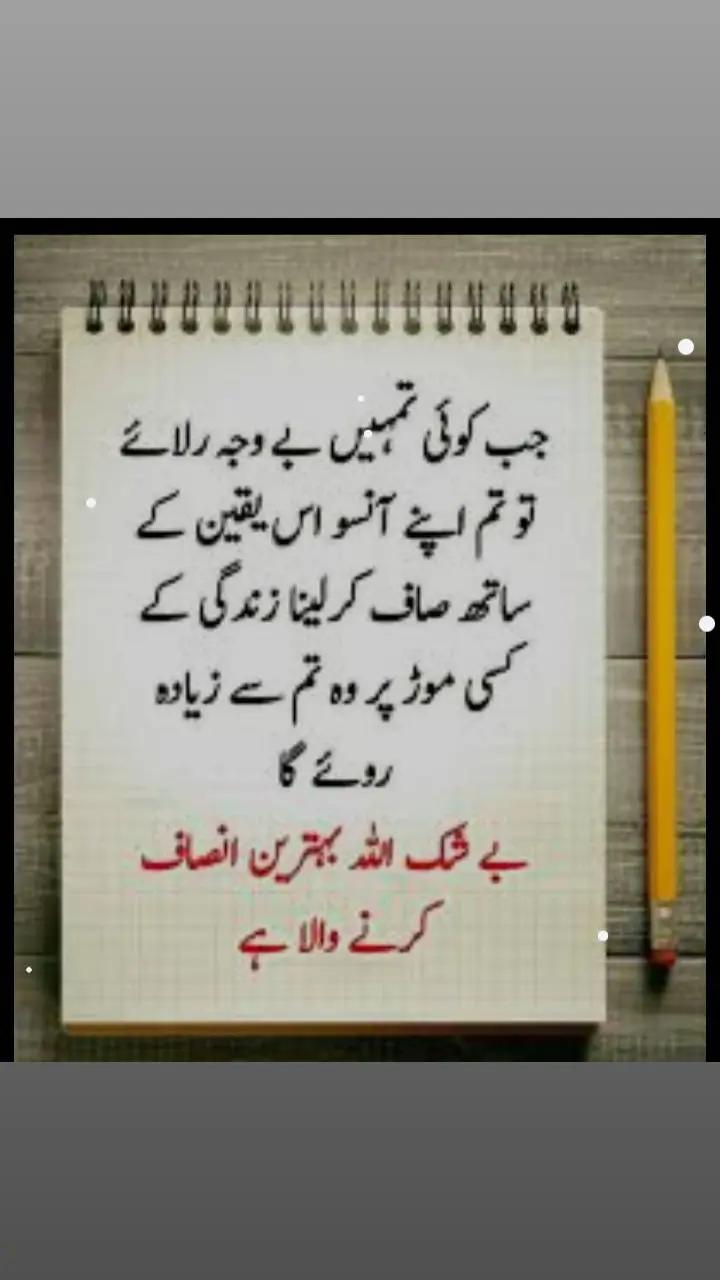 جب کوئی تمہیں بے وجہ رلائے
تو تم اپنے آنسو اس یقین کے
ساتھ صاف کر لینا زندگی کے
کسی موڑ پر وہ تم سے زیادہ
روئے گا
بے شک اللہ بہترین انصاف
کرنے والا ہے